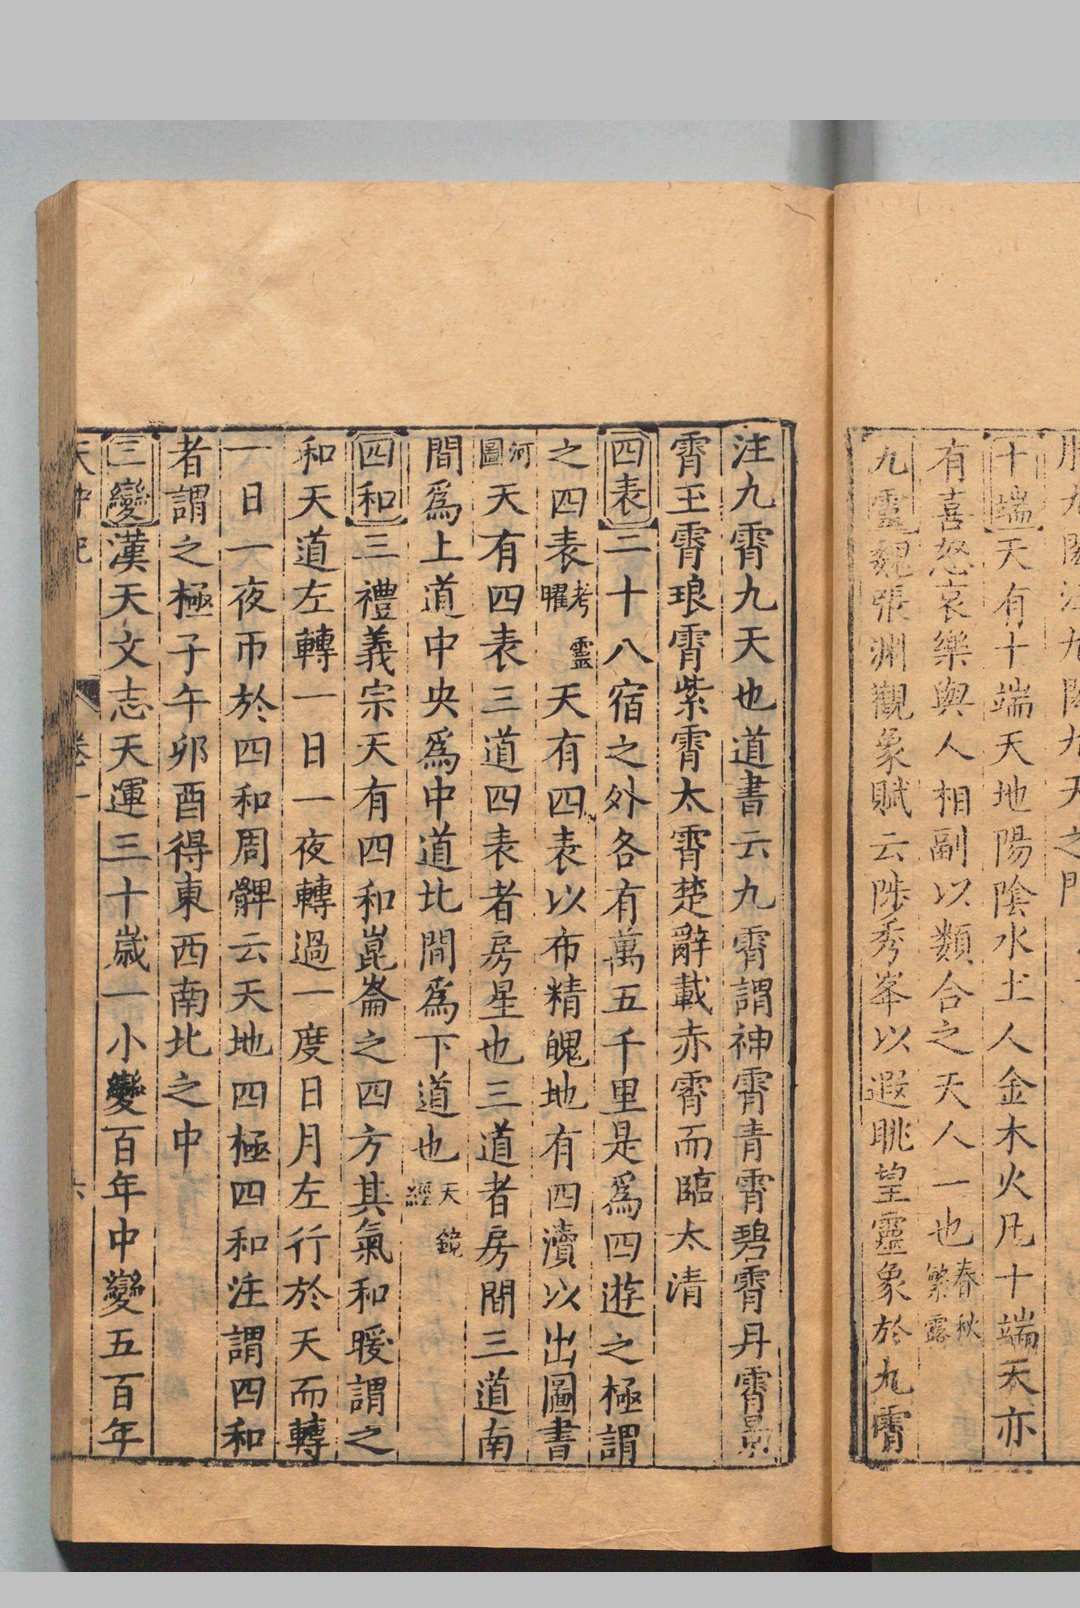 十端天有十端天地陽陰水土人金木火凡十端天亦
有喜怒哀樂與人相副以類合之天人一也春秋繁露
九霊魏張淵觀象賦云陟秀峯以遐眺望靈象於九霄
注九霄九天也道書云九霄謂神霄青霄碧霄丹霄景
霄玉霄琅霄紫霄太霄楚辭載赤霄而臨太清
四表二十八宿之外各有萬五千里是爲四遊之極謂
之四表考靈曜天有四表以布精魄地有四瀆以出圖書
河圖天有四表三道四表者房星也三道者房間三道南
間爲上道中央爲中道北間爲下道也天鏡經
四和三禮義宗天有四和崑崙之四方其氣和暖謂之
和天道左轉一日一夜轉過一度日月左行於天而轉
一日一夜帀於四和周髀云天地四極四和注謂四和
者謂之極子午卯酉得東西南北之中
三變漢天文志天運三十歲一小變百年中變五百年
天中記 卷一 六